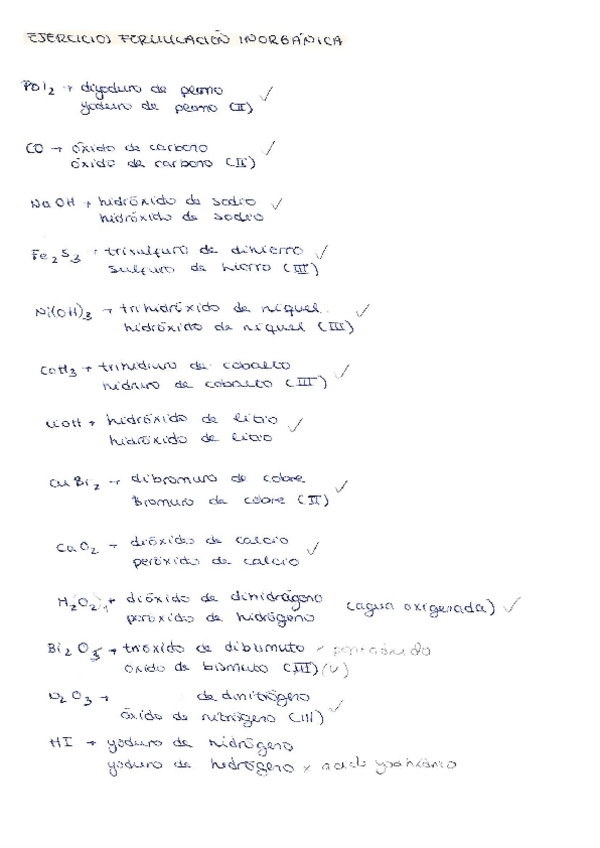 EJERCICIOS FORMULACIÓN INORGÁNICA
PbI2 → diyoduro de plomo ✓
yoduro de plomo (II)
CO → óxido de carbono ✓
óxido de carbono (II)
NaOH → hidróxido de sodio ✓
hidróxido de sodio
Fe2S3 → trisulfuro de dihierro ✓
sulfuro de hierro (III)
Ni(OH)3 → trihidróxido de níquel ✓
hidróxido de níquel (III)
CoH3 → trihidruro de cobalto ✓
hidruro de cobalto (III)
LiOH → hidróxido de litio ✓
hidróxido de litio
CuBr2 → dibromuro de cobre ✓
Bromuro de cobre (II)
CaO2 → dióxido de calcio ✓
peróxido de calcio
H2O2 → dióxido de dihidrógeno (agua oxigenada) ✓
peróxido de hidrógeno
Bi2O5 → trióxido de dibismuto pentaóxido
óxido de bismuto (III) (V)
N2O3 → de dinitrógeno ✓
óxido de nitrógeno (III)
HI → yoduro de hidrógeno
yoduro de hidrógeno x ácido yodhídrico